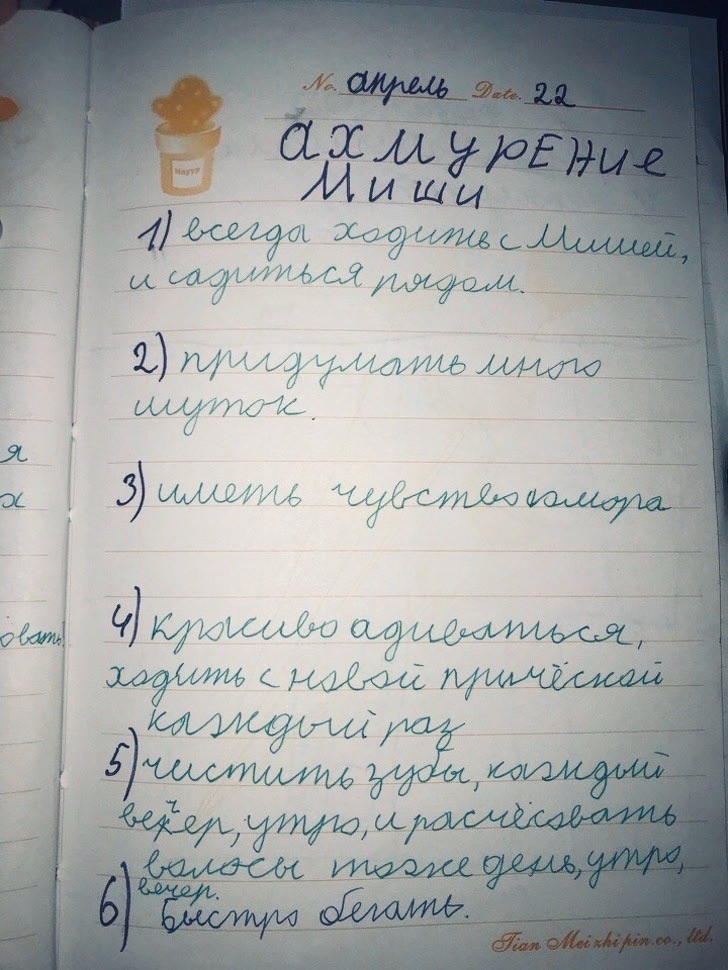 No. апрель Date. 22
ахмурение
Миши
наутр
1) всегда ходить с Мишей,
и садиться рядом.
2) придумать много
шуток.
я
3) иметь чувство юмора
х
4) красиво адиваться,
овать
ходить с новой причёской
каждый раз
5) чистить зубы, каждый
вечер, утро, и расчёсовать
волосы тоже день, утро,
вечер.
6) Быстро бегать.
Tian Mei zhi pin co., ltd.